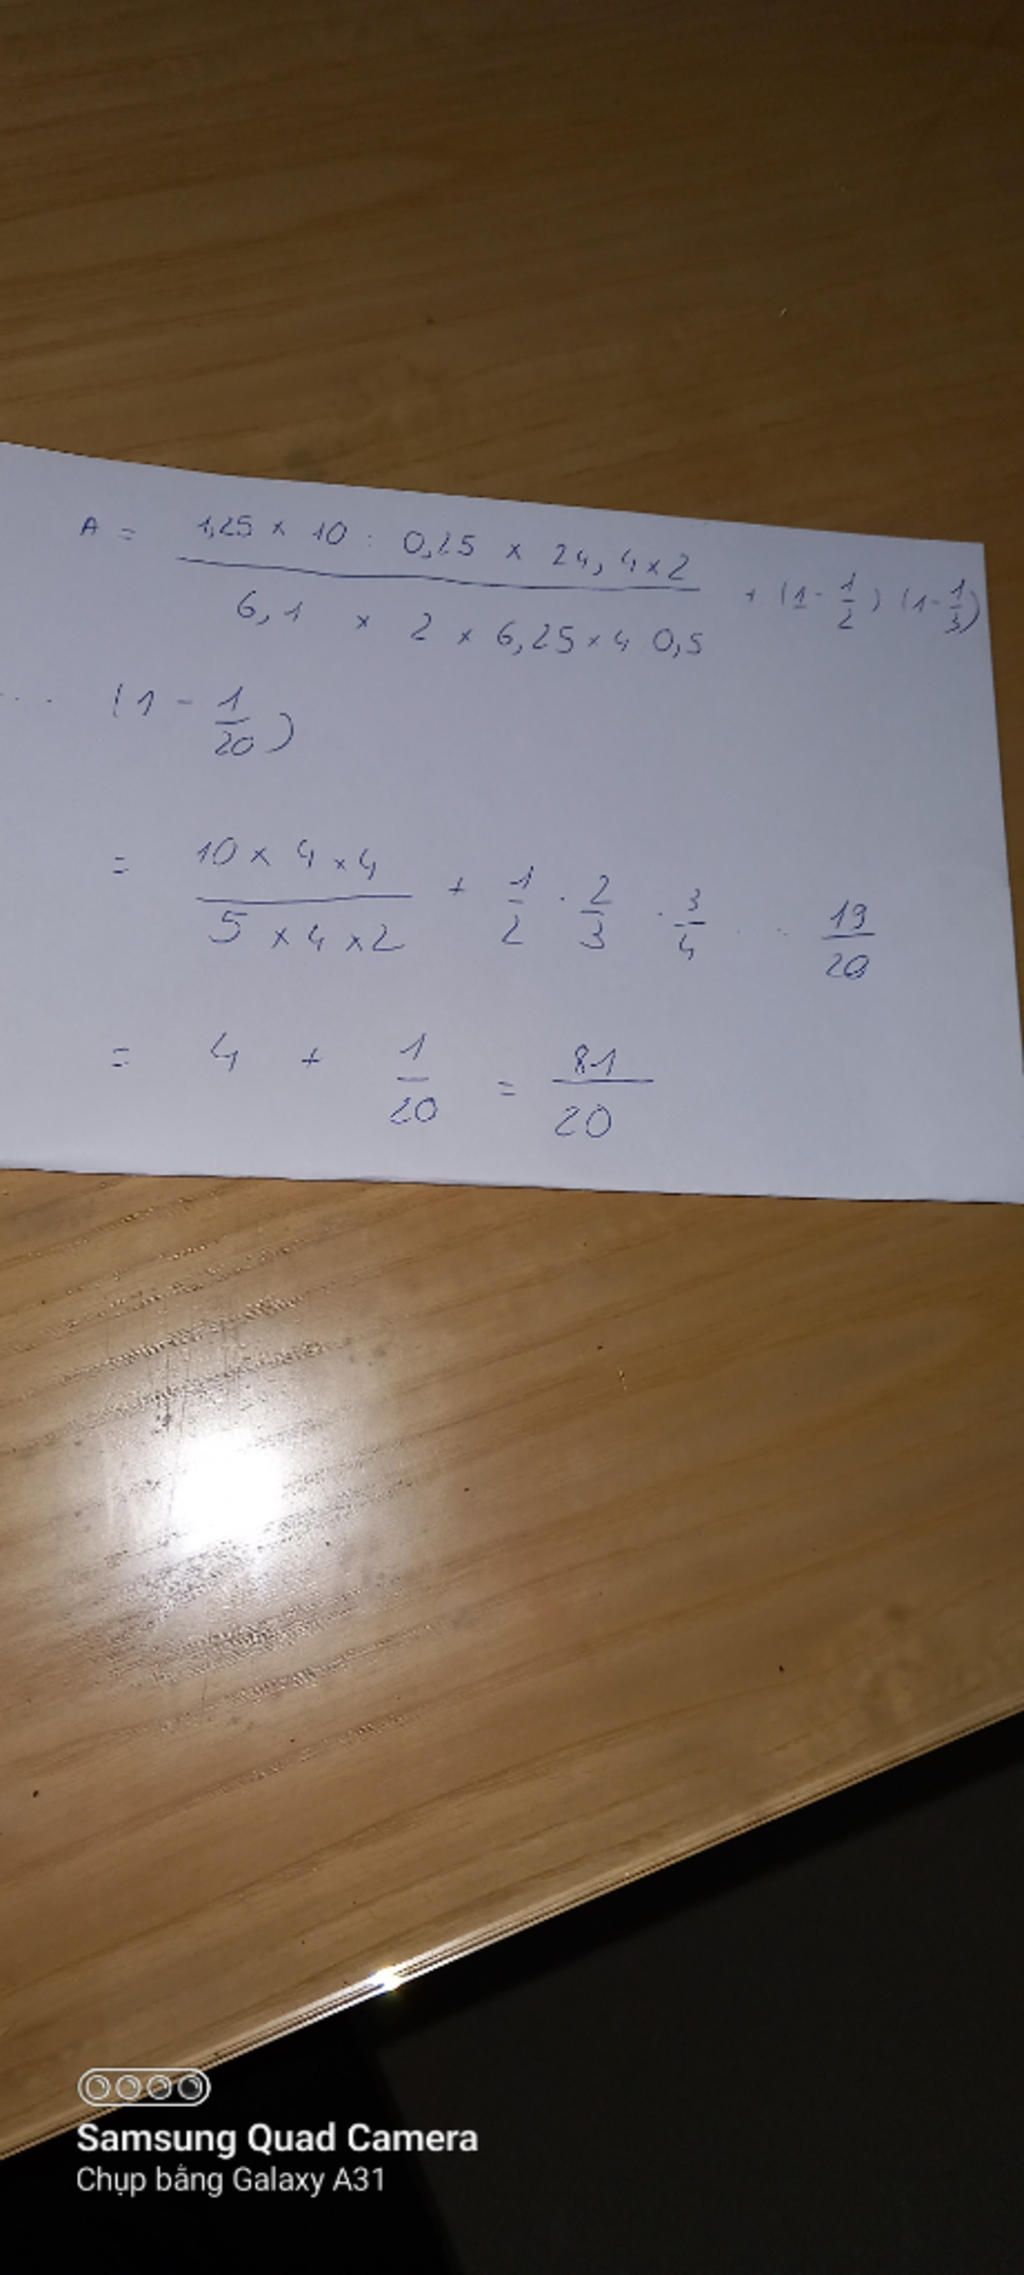 A = 1,25 × 10 : 0,25 × 24,4 × 2 / 6,1 × 2 × 6,25 × 4 0,5 + (1 - 1/2) (1 - 1/3)
... (1 - 1/20)
= 10 × 4 × 4 / 5 × 4 × 2 + 1/2 . 2/3 . 3/4 ... 19/20
= 4 + 1/20 = 81/20
Samsung Quad Camera
Chụp bằng Galaxy A31